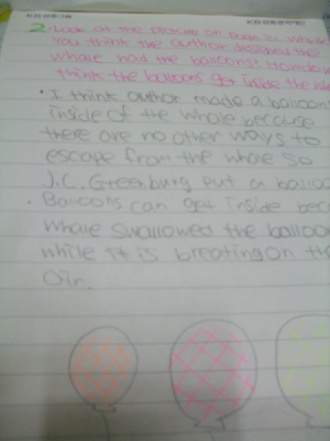 2. Look at the picture on page
you think the author designed the
whale had the balloons? How do
think the balloons get inside the
• I think author made a balloon
inside of the whale because
there are no other ways to
escape from the whale so
J.C. Greenburg put a
• Balloons can get inside
whale swallowed the
while it is breating on
air.